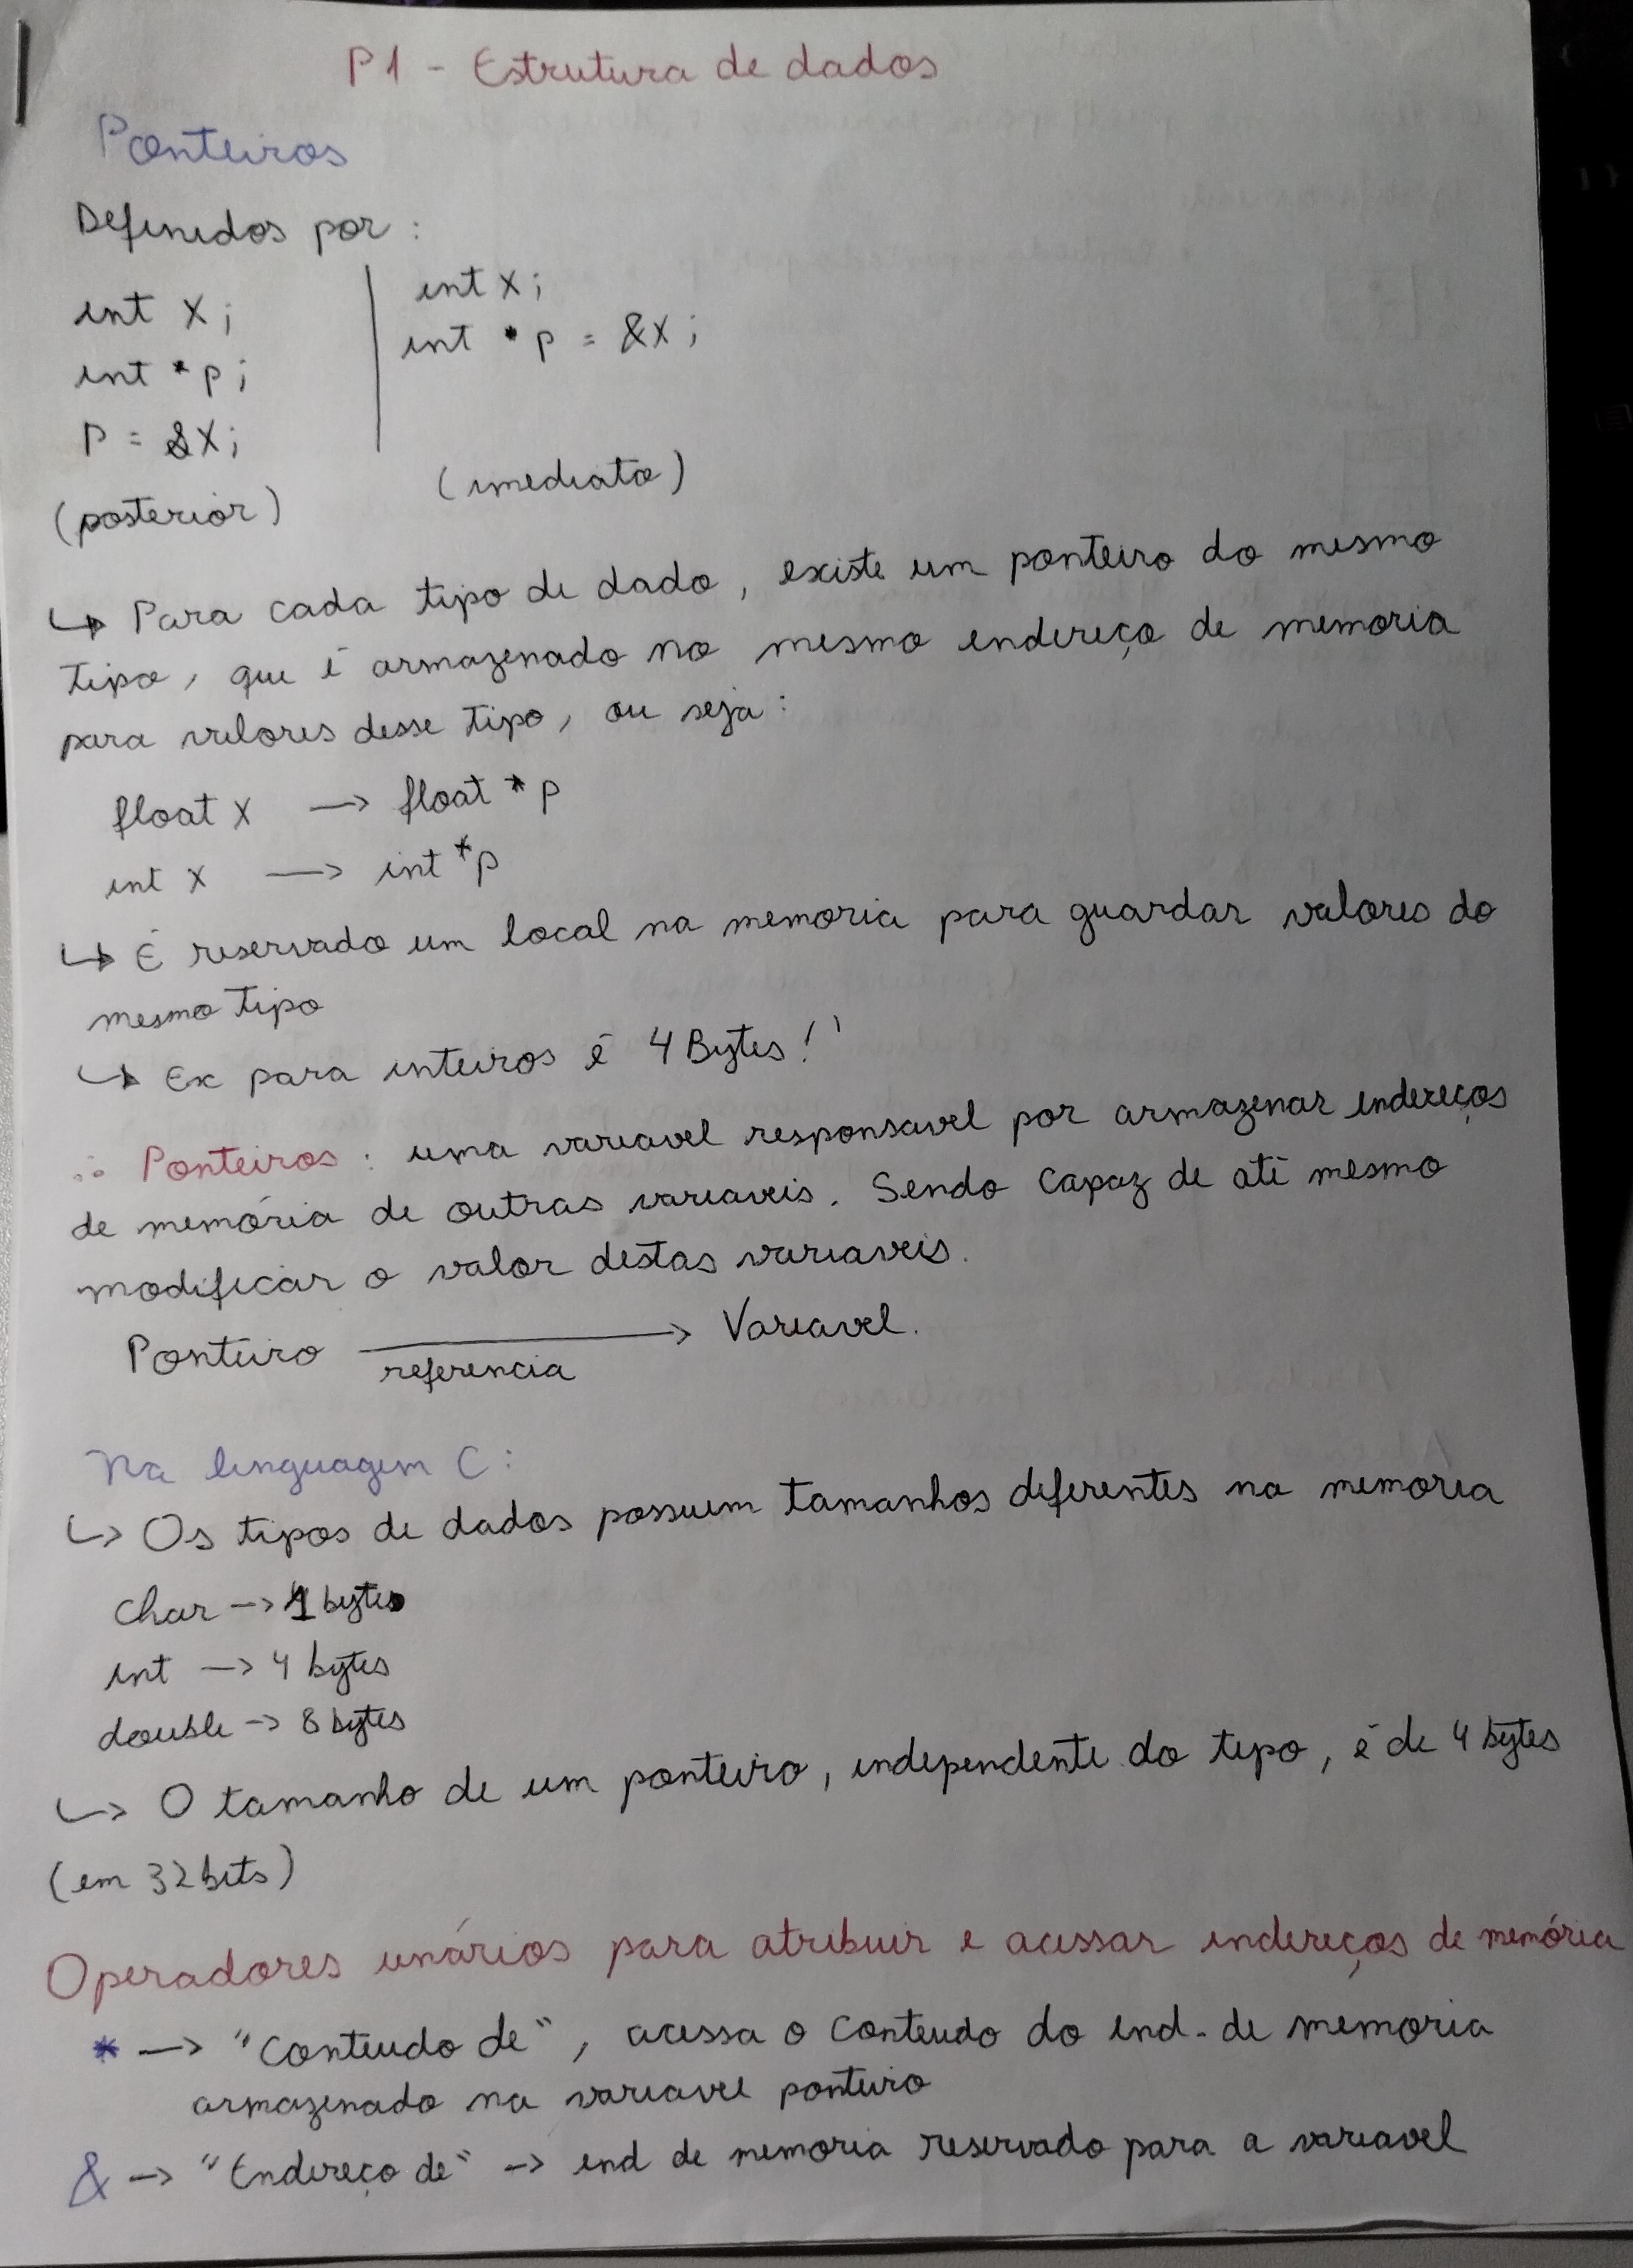 P1 - Estrutura de dados
Ponteiros
Definidos por :
int x;
int *p;
P = &x;
(posterior)
int x;
int *p = &x;
(imediato)
↳ Para cada tipo de dado, existe um ponteiro do mesmo
tipo, que é armazenado no mesmo endereço de memoria
para valores desse tipo, ou seja:
float x → float *p
int x → int *p
↳ É reservado um local na memoria para guardar valores do
mesmo tipo
↳ Ex para inteiros é 4 Bytes!
∴ Ponteiros: uma variavel responsavel por armazenar endereços
de memória de outras variaveis. Sendo capaz de até mesmo
modificar o valor destas variaveis.
Ponteiro → Variavel.
referencia
Na linguagem C:
↳ Os tipos de dados possuem tamanhos diferentes na memoria
char → 1 byte
int → 4 bytes
double → 8 bytes
↳ O tamanho de um ponteiro, independente do tipo, é de 4 bytes
(em 32 bits)
Operadores unários para atribuir e acessar endereços de memória
* → "Conteudo de", acessa o conteudo do end. de memoria
armazenado na variavel ponteiro
& → "Endereço de" → end de memoria reservado para a variavel